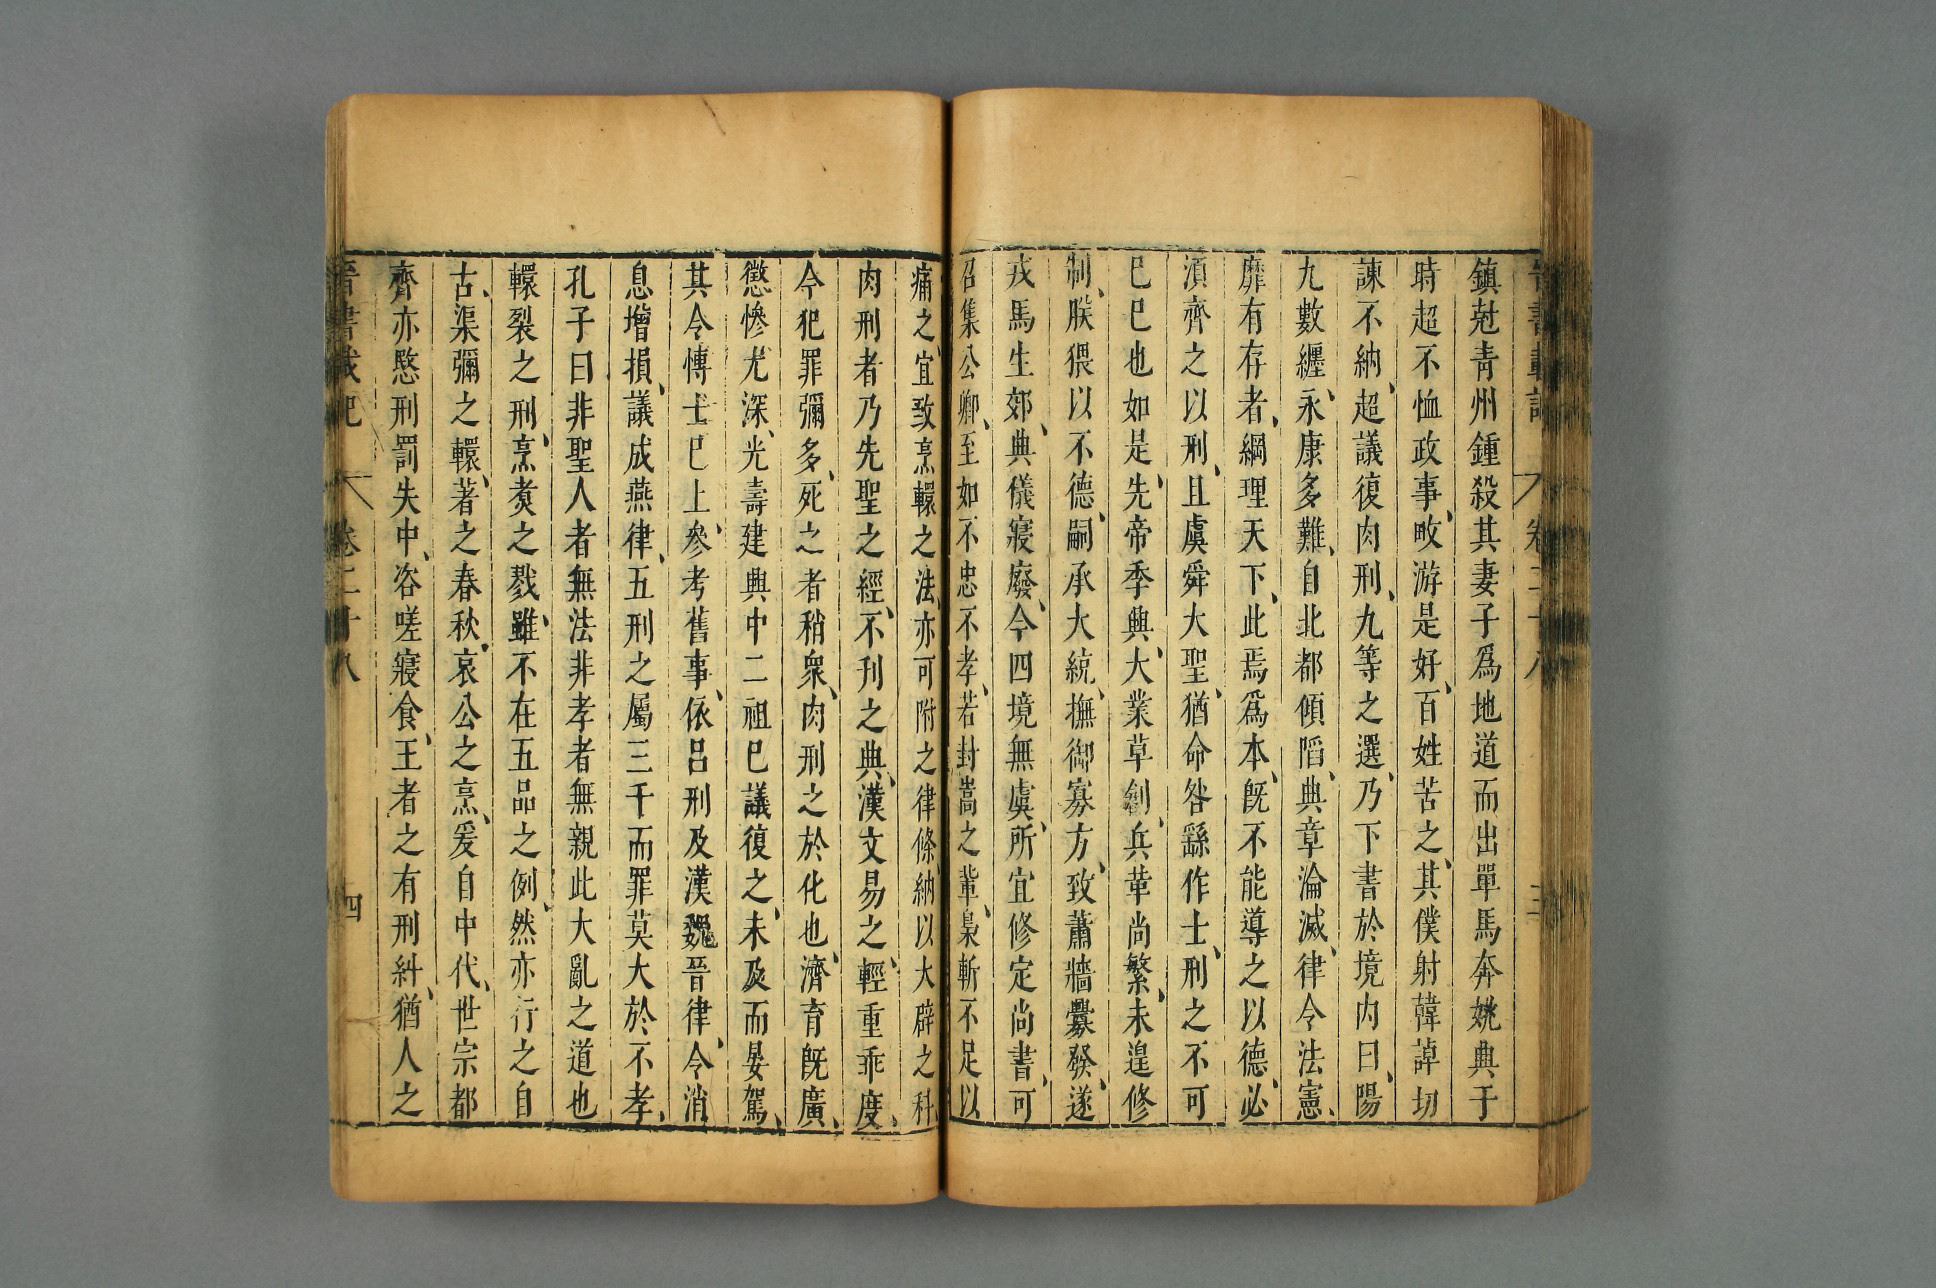 鎮尅青州鍾殺其妻子爲地道而出單馬奔姚典于
時超不恤政事畋游是好百姓苦之其僕射韓𧨳切
諫不納超議復肉刑九等之選乃下書於境内曰陽
九數纒永康多難自北都傾陷典章淪滅律令法憲
靡有存者綱理天下此焉爲本旣不能導之以德必
須齊之以刑且虞舜大聖猶命咎繇作士刑之不可
巳巳也如是先帝季興大業草創兵革尚繁未遑修
制朕猥以不德嗣承大統撫御寡方致蕭牆釁發遂
戎馬生郊典儀寢廢今四境無虞所宜修定尚書可
召集公卿至如不忠不孝若封嵩之輩梟斬不足以
痛之宜致烹轘之法亦可附之律條納以大辟之科
肉刑者乃先聖之經不刋之典漢文易之輕重乖度
今犯罪彌多死之者稍衆肉刑之於化也濟育旣廣
懲慘尤深光壽建興中二祖巳議復之未及而晏駕
其令愽士巳上參考舊事依呂刑及漢魏晉律令消
息增損議成燕律五刑之屬三千而罪莫大於不孝
孔子曰非聖人者無法非孝者無親此大亂之道也
轘裂之刑烹煑之戮雖不在五品之例然亦行之自
古渠彌之轘著之春秋哀公之烹爰自中代世宗都
齊亦愍刑罰失中咨嗟寢食王者之有刑糾猶人之
晉書載記 卷二十八 四